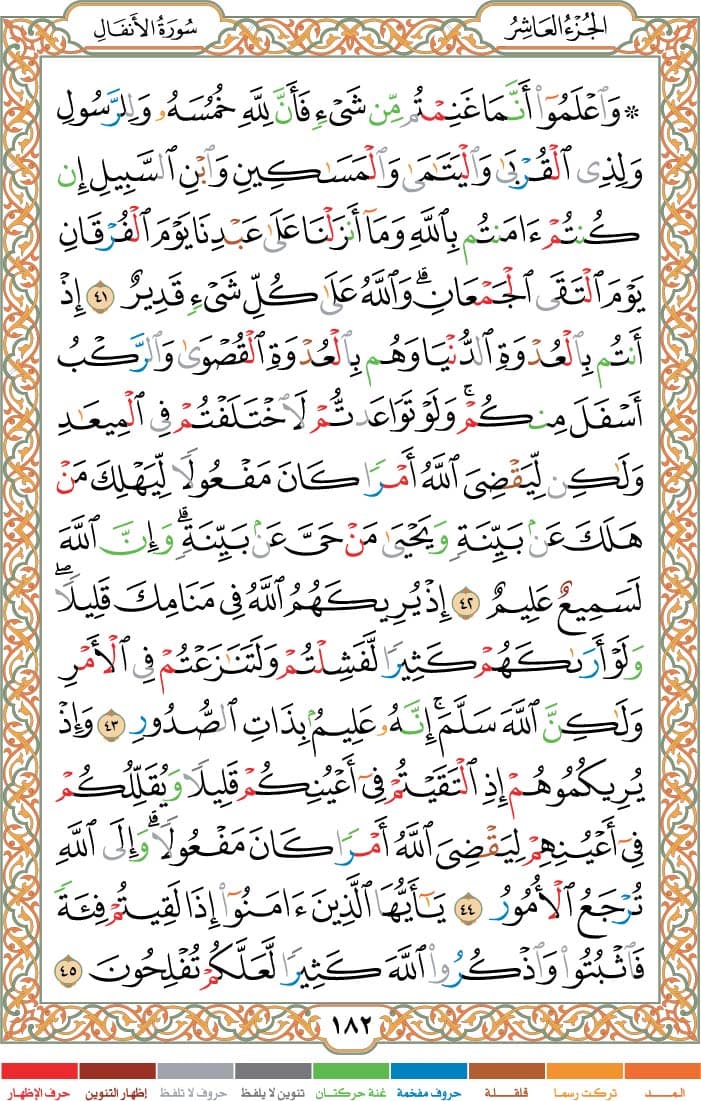 الجُزْءُ العَاشِرُ
سُورَةُ الأَنفَالِ
۞ وَٱعْلَمُوٓا۟ أَنَّمَا غَنِمْتُم مِّن شَىْءٍ فَأَنَّ لِلَّهِ خُمُسَهُۥ وَلِلرَّسُولِ
وَلِذِى ٱلْقُرْبَىٰ وَٱلْيَتَـٰمَىٰ وَٱلْمَسَـٰكِينِ وَٱبْنِ ٱلسَّبِيلِ إِن
كُنتُمْ ءَامَنتُم بِٱللَّهِ وَمَآ أَنزَلْنَا عَلَىٰ عَبْدِنَا يَوْمَ ٱلْفُرْقَانِ
يَوْمَ ٱلْتَقَى ٱلْجَمْعَانِ ۗ وَٱللَّهُ عَلَىٰ كُلِّ شَىْءٍ قَدِيرٌ ٤١ إِذْ
أَنتُم بِٱلْعُدْوَةِ ٱلدُّنْيَا وَهُم بِٱلْعُدْوَةِ ٱلْقُصْوَىٰ وَٱلرَّكْبُ
أَسْفَلَ مِنكُمْ ۚ وَلَوْ تَوَاعَدتُّمْ لَٱخْتَلَفْتُمْ فِى ٱلْمِيعَـٰدِ
وَلَـٰكِن لِّيَقْضِىَ ٱللَّهُ أَمْرًا كَانَ مَفْعُولًا لِّيَهْلِكَ مَنْ
هَلَكَ عَنۢ بَيِّنَةٍ وَيَحْيَىٰ مَنْ حَىَّ عَنۢ بَيِّنَةٍ ۗ وَإِنَّ ٱللَّهَ
لَسَمِيعٌ عَلِيمٌ ٤٢ إِذْ يُرِيكَهُمُ ٱللَّهُ فِى مَنَامِكَ قَلِيلًا ۖ
وَلَوْ أَرَىٰكَهُمْ كَثِيرًا لَّفَشِلْتُمْ وَلَتَنَـٰزَعْتُمْ فِى ٱلْأَمْرِ
وَلَـٰكِنَّ ٱللَّهَ سَلَّمَ ۗ إِنَّهُۥ عَلِيمٌۢ بِذَاتِ ٱلصُّدُورِ ٤٣ وَإِذْ
يُرِيكُمُوهُمْ إِذِ ٱلْتَقَيْتُمْ فِىٓ أَعْيُنِكُمْ قَلِيلًا وَيُقَلِّلُكُمْ
فِىٓ أَعْيُنِهِمْ لِيَقْضِىَ ٱللَّهُ أَمْرًا كَانَ مَفْعُولًا ۗ وَإِلَى ٱللَّهِ
تُرْجَعُ ٱلْأُمُورُ ٤٤ يَـٰٓأَيُّهَا ٱلَّذِينَ ءَامَنُوٓا۟ إِذَا لَقِيتُمْ فِئَةً
فَٱثْبُتُوا۟ وَٱذْكُرُوا۟ ٱللَّهَ كَثِيرًا لَّعَلَّكُمْ تُفْلِحُونَ ٤٥
١٨٢
المــد تركت رسما قلقلة حروف مفخمة غنة حركتان تنوين لا يلفظ حروف لا تلفظ إظهار التنوين حرف الإظهار